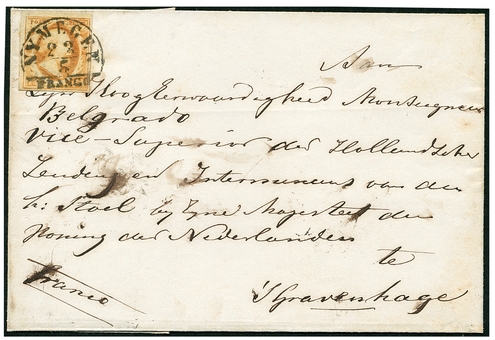 NYMEGEN
22
5
FRANCO
Aan
Zyne Hoogeerwaardigheid Monseigneur
Belgrado
Vice-Superior der Hollandsche
Zending en Internuncius van den
h: Stoel by Zyne Majesteit den
Koning der Nederlanden
te
'sGravenhage
Franco